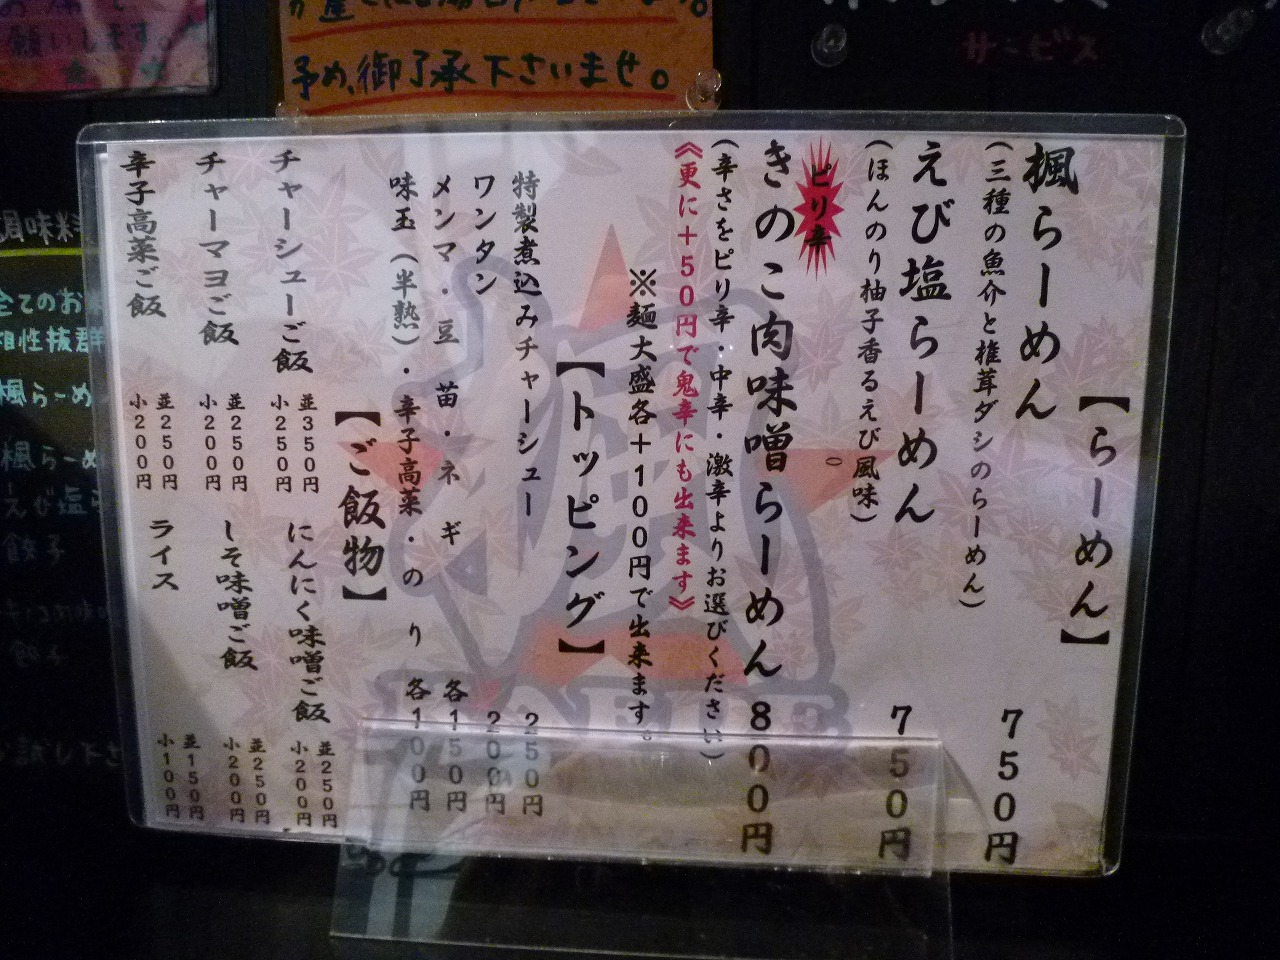 願いします。
予め、御了承下さいませ。
サービス
【らーめん】
楓らーめん 750円
(三種の魚介と椎茸ダシのらーめん)
えび塩らーめん 750円
(ほんのり柚子香るえび風味)
ピリ辛
きのこ肉味噌らーめん 800円
(辛さをピリ辛・中辛・激辛よりお選びください)
《更に+50円で鬼辛にも出来ます》
※麺大盛各+100円で出来ます。
【トッピング】
特製煮込みチャーシュー 250円
ワンタン 200円
メンマ・豆苗・ネギ 各150円
味玉(半熟)・辛子高菜・のり 各100円
【ご飯物】
チャーシューご飯 並350円 小250円
にんにく味噌ご飯 並250円 小200円
チャーマヨご飯 並250円 小200円
しそ味噌ご飯 並250円 小200円
辛子高菜ご飯 並250円 小200円
ライス 並150円 小100円
調味料
全てのお
相性抜群
楓らーめ
楓らーめ
えび塩ら
餃子
餃子